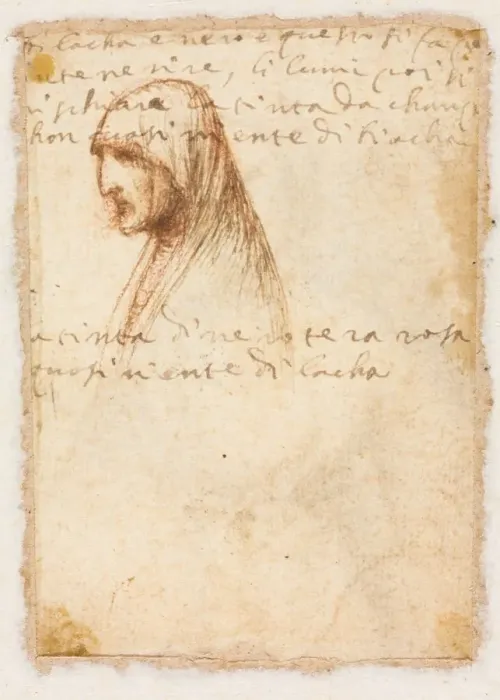 di lacha e nero e questo si fa
tenerire, li lumi poi si
rischiara la tinta da
hon quasi niente di biacha
a tinta di nero tera rosa
quasi niente di lacha